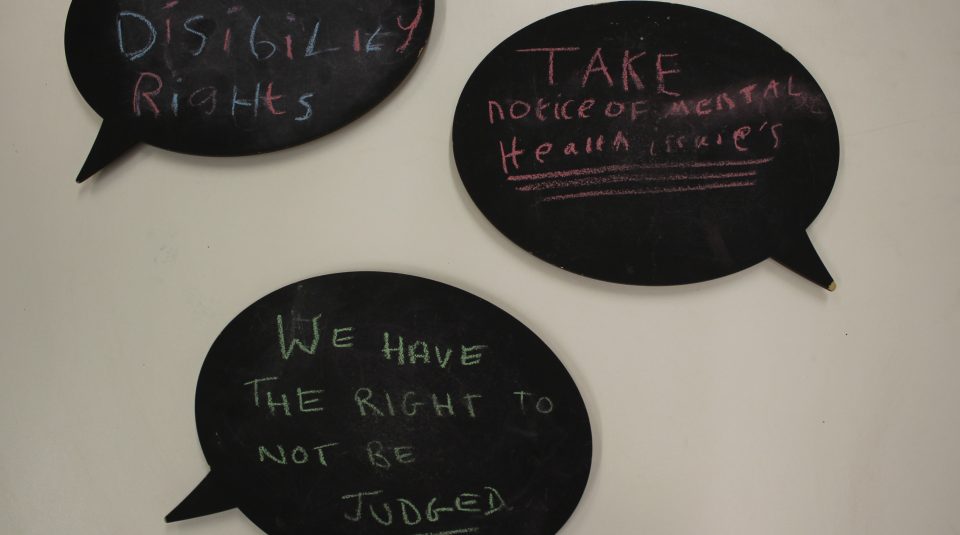 DiSibiLity
RigHts
TAKE
noticE OF MENTAL
HeaLth issue's
WE HAVE
THE RIGHT TO
NOT BE
JUDGED